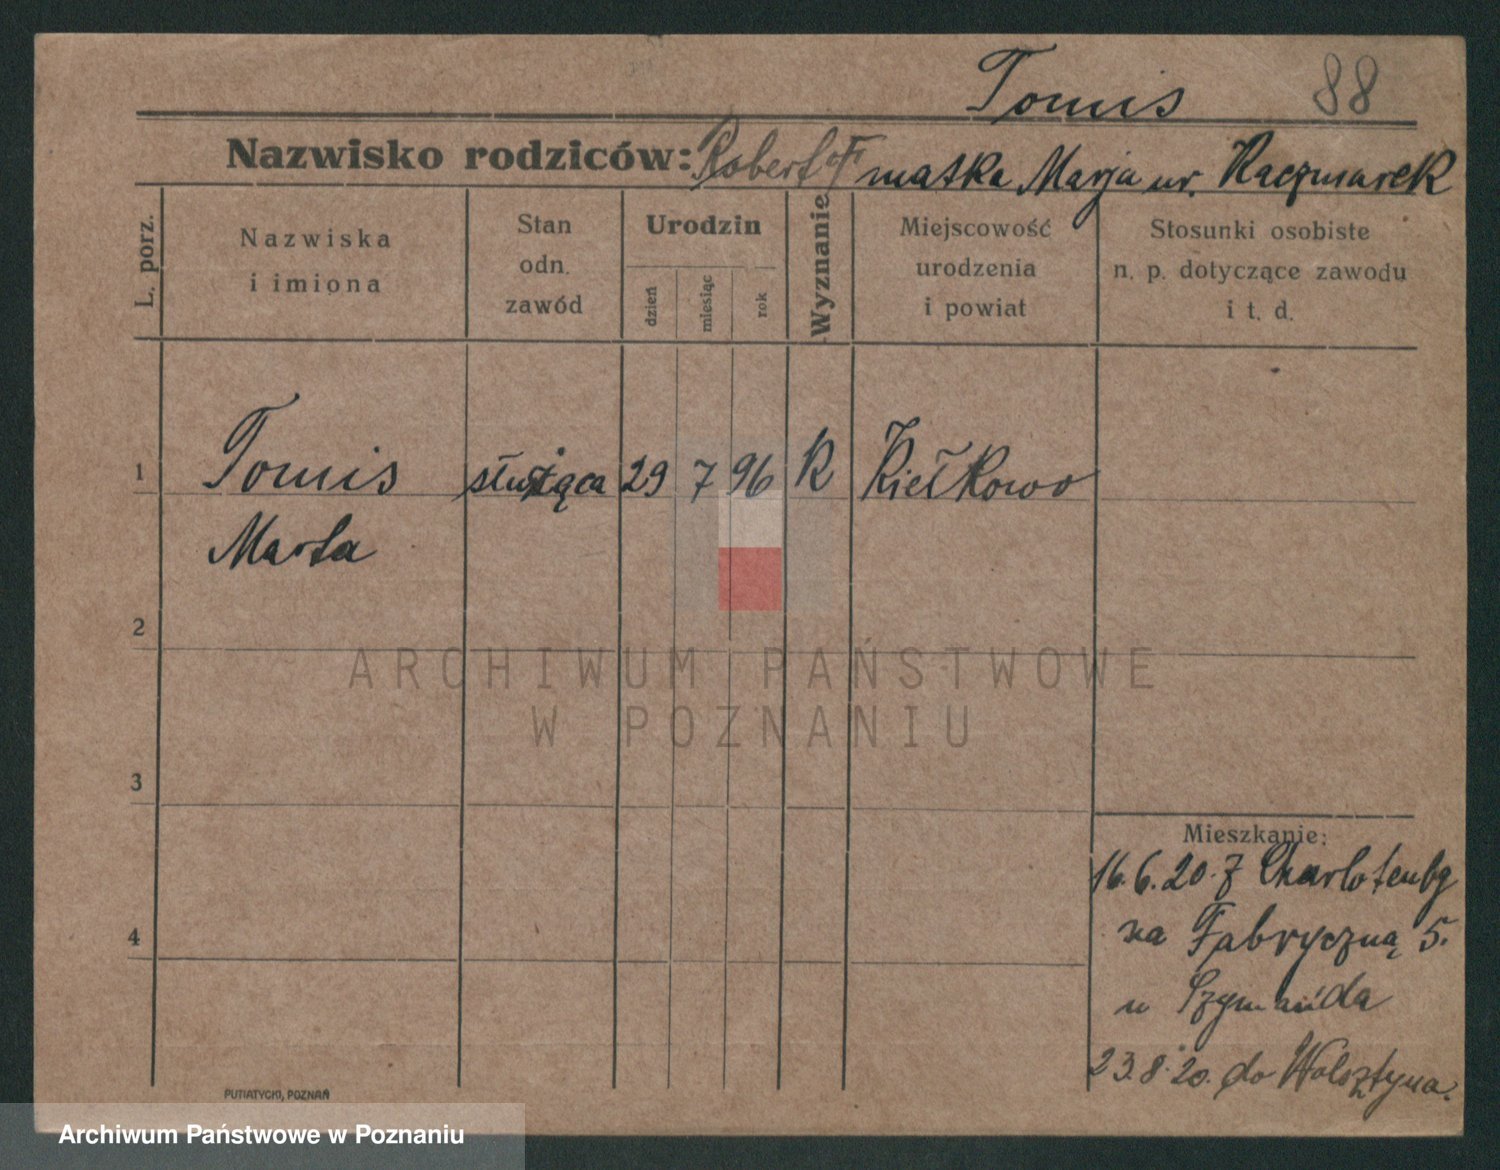 Tomis 88
Nazwisko rodziców: Robert matka Marja ur. Kaczmarek
L. porz.
Nazwiska
i imiona
Stan
odn.
zawód
Urodzin
dzień
miesiąc
rok
Wyznanie
Miejscowość
urodzenia
i powiat
Stosunki osobiste
n. p. dotyczące zawodu
i t. d.
1 Tomis służąca 29 7 96 K Kiełkowo
Marta
2
ARCHIWUM PAŃSTWOWE
W POZNANIU
3
Mieszkanie:
16.6.20. z Charlotenbg
4 na Fabryczną 5.
u
23.8.20. do Wolsztyna.
PUTIATYCKI, POZNAŃ
Archiwum Państwowe w Poznaniu